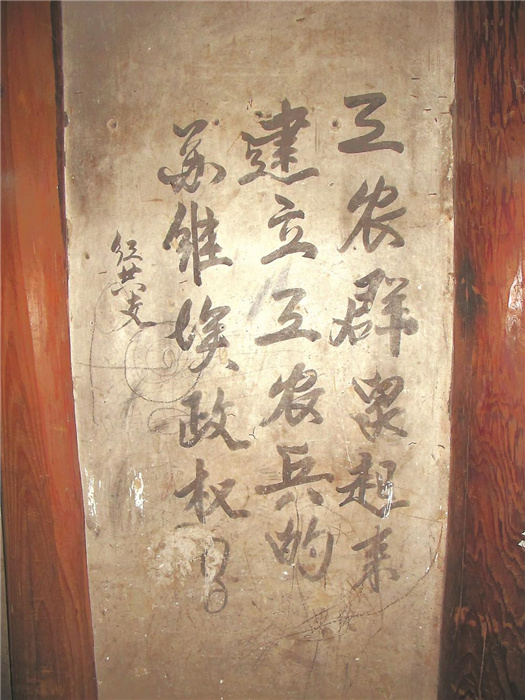 工农群众起来
建立工农兵的
苏维埃政权!
红共支